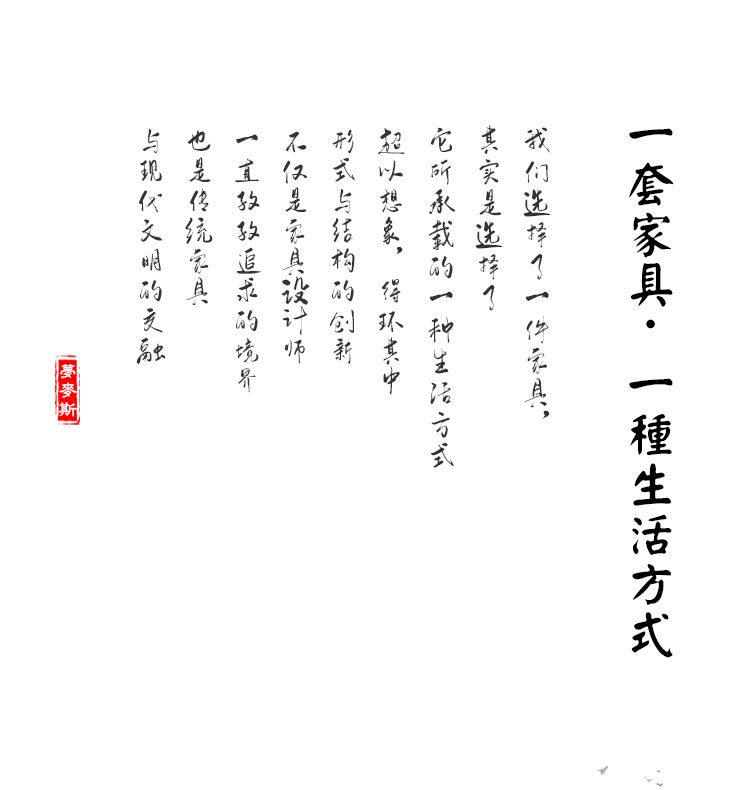 一套家具·一種生活方式
我们选择了一件家具，
其实是选择了
它所承载的一种生活方式
超以想象，得环其中
形式与结构的创新
不仅是家具设计师
一直孜孜追求的境界
也是传统家具
与现代文明的交融
夢麥斯